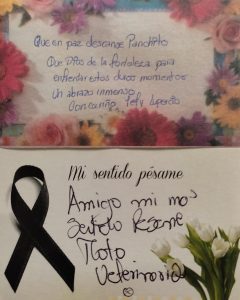 Que en paz descanse Panchito
Que Dios de la fortaleza para
enfrentar estos duros momentos
Un abrazo inmenso
Con cariño,
Mi sentido pésame
Amigo mi mas
sentido Pesame
Veterinaria